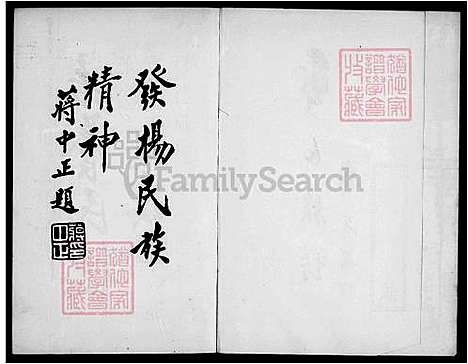 發揚民族
精神
蔣中正題
FamilySearch